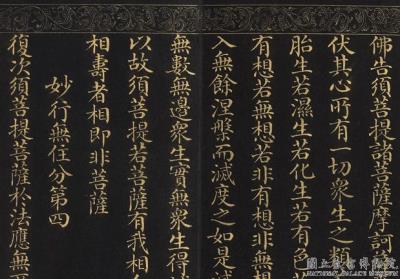 佛告須菩提諸菩薩摩訶
伏其心所有一切衆生之類
胎生若濕生若化生若有色
有想若無想若非有想非無想
入無餘涅槃而滅度之如是
無數無邊衆生實無衆生得
以故須菩提若菩薩有我相
相壽者相即非菩薩
妙行無住分第四
復次須菩提菩薩於法應無
國立故宮博物院
NATIONAL PALACE MUSEUM